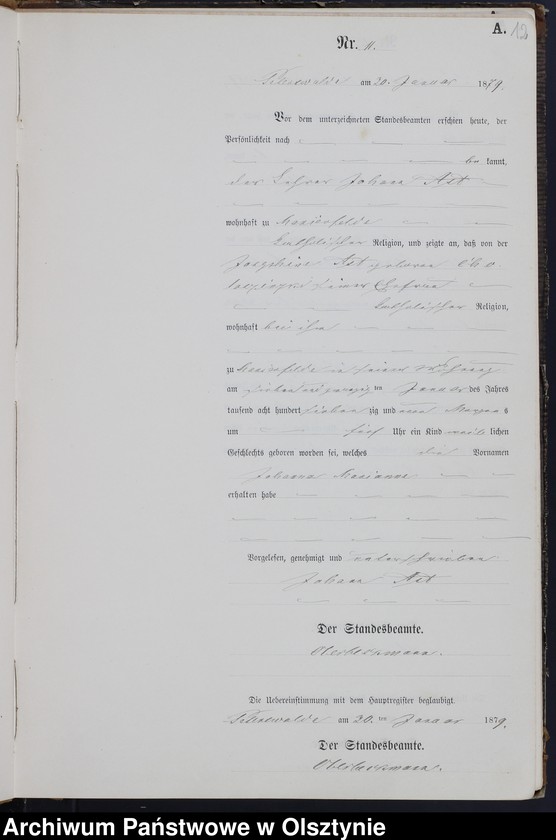 A. 12
Nr. 11.
am 20. Januar 1879.
Vor dem unterzeichneten Standesbeamten erschien heute, der
Persönlichkeit nach
be kannt,
der Lehrer Johann Ast
wohnhaft zu
katholischer Religion, und zeigte an, daß von der
Josephine Ast geboren
seiner Ehefrau
katholischer Religion,
wohnhaft bei ihm
zu in seiner Wohnung
am ten Januar des Jahres
tausend acht hundert sieben zig und neun Morgens
um fünf Uhr ein Kind weib lichen
Geschlechts geboren worden sei, welches die Vornamen
Johanna Marianne
erhalten habe
Vorgelesen, genehmigt und unterschrieben
Johann Ast
Der Standesbeamte.
Die Uebereinstimmung mit dem Hauptregister beglaubigt.
am 20. ten Januar 1879.
Der Standesbeamte.
Archiwum Państwowe w Olsztynie